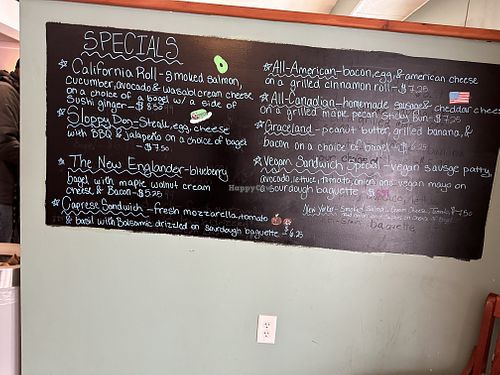 SPECIALS
☆ California Roll - smoked salmon,
cucumber, avocado & wasabi cream cheese
on a choice of a bagel w/ a side of
sushi ginger - $8.50
☆ Sloppy Don - Steak, egg, cheese
with BBQ & jalapeño on a choice of bagel
- $7.50
☆ The New Englander - blueberry
bagel with maple walnut cream
cheese & Bacon - $5.25
☆ Caprese Sandwich - fresh mozzarella, tomato
& basil with Balsamic drizzled on sourdough baguette $6.25
☆ All-American - bacon, egg, & american cheese
on a grilled cinnamon roll - $7.25
☆ All-Canadian - homemade sausage & cheddar cheese
on a grilled maple pecan sticky bun - $7.25
☆ Graceland - peanut butter, grilled banana, &
bacon on a choice of bagel - $6.25
☆ Vegan Sandwich Special - vegan sausge patty,
avocado, lettuce, tomato, onion and vegan mayo on
sourdough baguette - $
New Yorker - Smoked Salmon, Cream Cheese, Tomato,
baguette
HappyCow